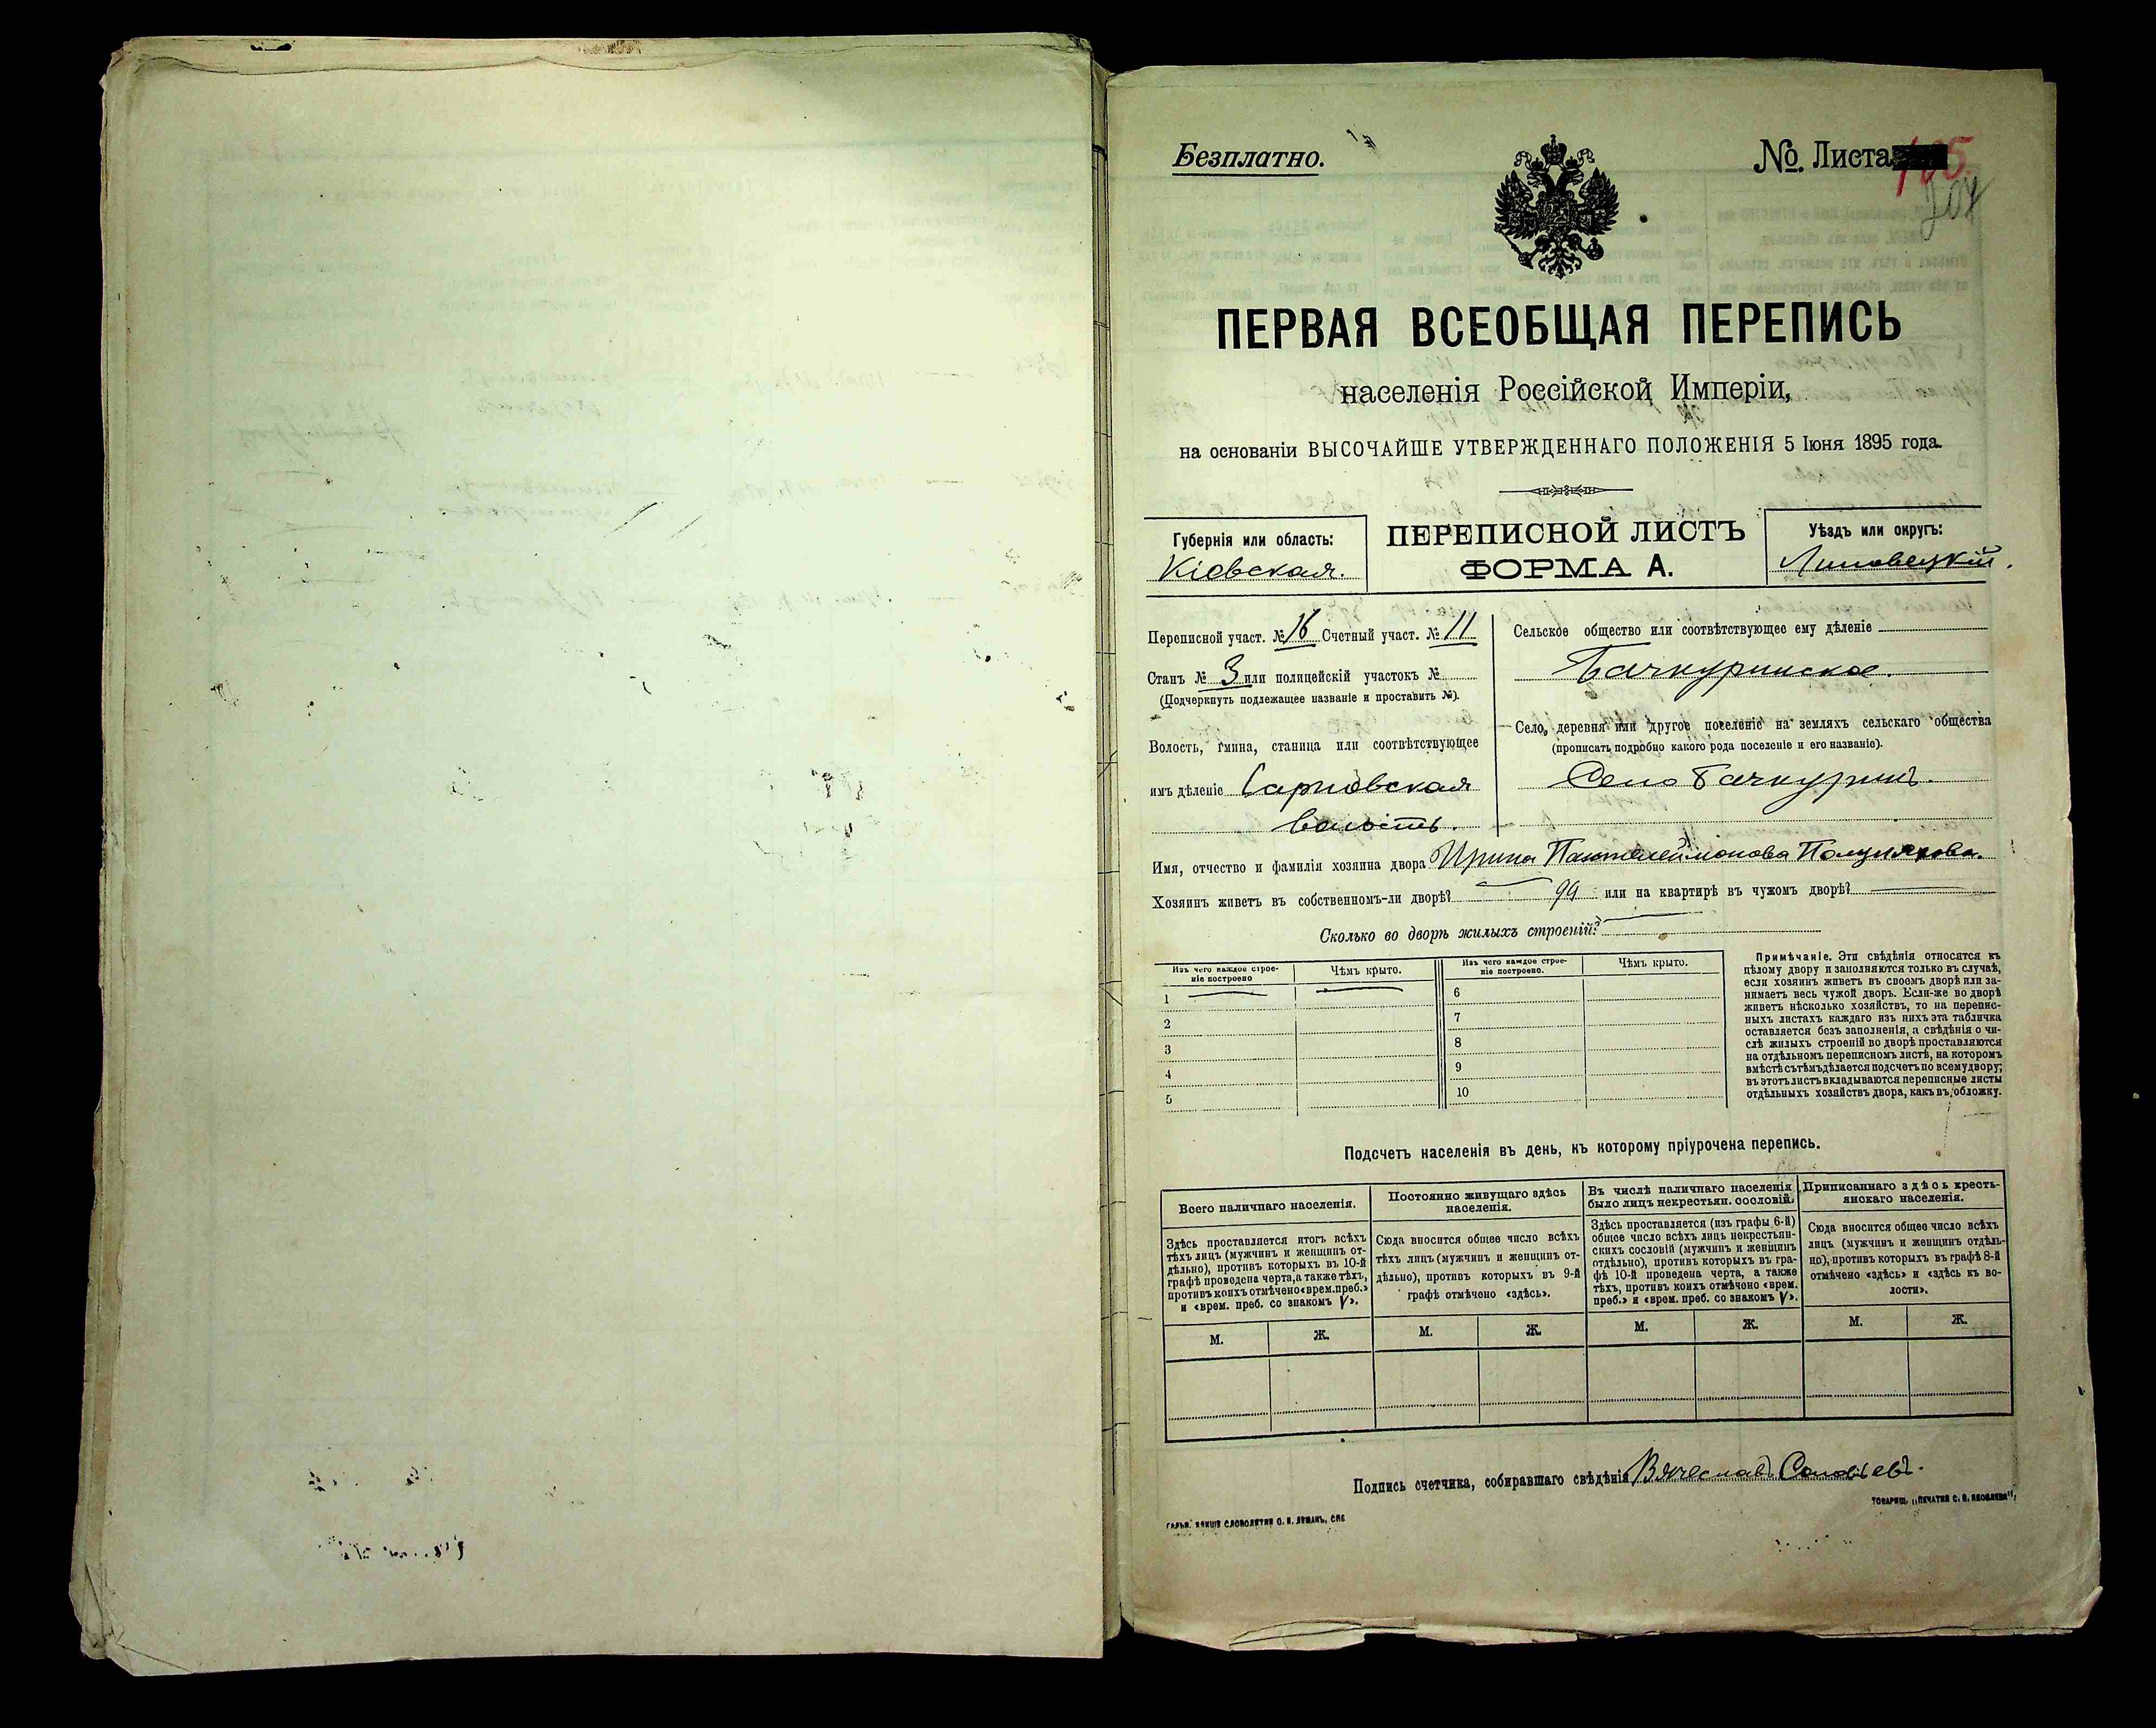 Безплатно.
№. Листа 105.
207
ПЕРВАЯ ВСЕОБЩАЯ ПЕРЕПИСЬ
населенія Россійской Имперіи,
на основаніи ВЫСОЧАЙШЕ УТВЕРЖДЕННАГО ПОЛОЖЕНІЯ 5 Іюня 1895 года.
Губернія или область:
Кіевская.
ПЕРЕПИСНОЙ ЛИСТЪ
ФОРМА А.
Уѣздъ или округъ:
Липовецкій.
Переписной участ. № 16 Счетный участ. № 11
Станъ № 3 или полицейскій участокъ №
(Подчеркнуть подлежащее названіе и проставить №).
Волость, гмина, станица или соотвѣтствующее
имъ дѣленіе Сарновская
волость.
Сельское общество или соотвѣтствующее ему дѣленіе
Бачкуринское.
Село, деревня или другое поселеніе на земляхъ сельскаго общества
(прописать подробно какого рода поселеніе и его названіе).
Село Бачкуринъ.
Имя, отчество и фамилія хозяина двора Ирина Пантелеймонова
Хозяинъ живетъ въ собственномъ-ли дворѣ? 99 или на квартирѣ въ чужомъ дворѣ?
Сколько во дворѣ жилыхъ строеній?
Изъ чего каждое строе-
ніе построено
Чѣмъ крыто.
Изъ чего каждое строе-
ніе построено.
Чѣмъ крыто.
1 6
2 7
3 8
4 9
5 10
Примѣчаніе. Эти свѣдѣнія относятся къ
цѣлому двору и заполняются только въ случаѣ,
если хозяинъ живетъ въ своемъ дворѣ или за-
нимаетъ весь чужой дворъ. Если-же во дворѣ
живетъ нѣсколько хозяйствъ, то на перепис-
ныхъ листахъ каждаго изъ нихъ эта табличка
оставляется безъ заполненія, а свѣдѣнія о чи-
слѣ жилыхъ строеній во дворѣ проставляются
на отдѣльномъ переписномъ листѣ, на которомъ
вмѣстѣ съ тѣмъ дѣлается подсчетъ по всему двору;
въ этотъ листъ вкладываются переписные листы
отдѣльныхъ хозяйствъ двора, какъ въ обложку.
Подсчетъ населенія въ день, къ которому пріурочена перепись.
Всего наличнаго населенія.
Здѣсь проставляется итогъ всѣхъ
тѣхъ лицъ (мужчинъ и женщинъ от-
дѣльно), противъ которыхъ въ 10-й
графѣ проведена черта, а также тѣхъ,
противъ коихъ отмѣчено «врем. преб.»
и «врем. преб. со знакомъ V».
М. Ж.
Постоянно живущаго здѣсь
населенія.
Сюда вносится общее число всѣхъ
тѣхъ лицъ (мужчинъ и женщинъ от-
дѣльно), противъ которыхъ въ 9-й
графѣ отмѣчено «здѣсь».
М. Ж.
Въ числѣ наличнаго населенія
было лицъ некрестьян. сословій.
Здѣсь проставляется (изъ графы 6-й)
общее число всѣхъ лицъ некрестьян-
скихъ сословій (мужчинъ и женщинъ
отдѣльно), противъ которыхъ въ гра-
фѣ 10-й проведена черта, а также
тѣхъ, противъ коихъ отмѣчено «врем.
преб.» и «врем. преб. со знакомъ V».
М. Ж.
Приписаннаго здѣсь кресть-
янскаго населенія.
Сюда вносится общее число всѣхъ
лицъ (мужчинъ и женщинъ отдѣль-
но), противъ которыхъ въ графѣ 8-й
отмѣчено «здѣсь» и «здѣсь къ во-
лости».
М. Ж.
Подпись счетчика, собиравшаго свѣдѣнія Вячеславъ Соловьевъ.
СЛОВОЛИТНИ О. И. ЛЕМАНЪ, СПБ
ТОВАРИЩ. „ПЕЧАТНЯ С. П. ЯКОВЛЕВА".